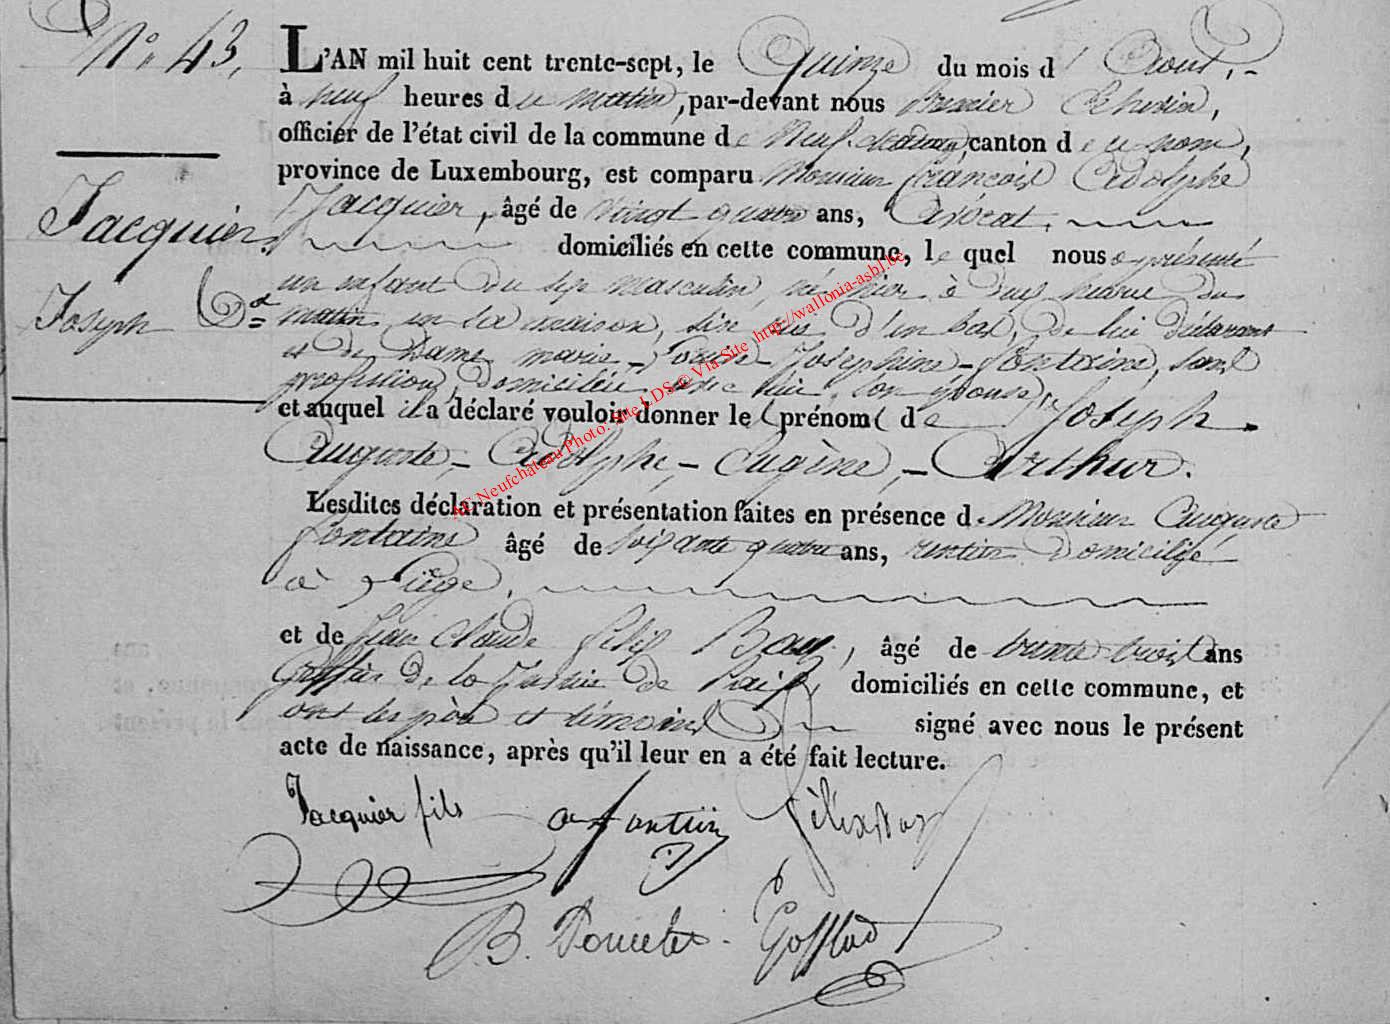 N° 43.
L'AN mil huit cent trente-sept, le Quinze du mois d' Aout,
à neuf heures du matin, par-devant nous premier Echevin,
officier de l'état civil de la commune de Neufchateau canton de ce nom,
province de Luxembourg, est comparu Monsieur françois Adolphe
Jacquier, âgé de vingt quatre ans, Avocat,
Jacquier.
domiciliés en cette commune, le quel nous a présenté
un enfant du sexe masculin, né hier à dix heures du
Joseph
matin, en la maison, sise d'en bas, de lui déclarant
et de Dame marie-Louise-Josephine-fontaine, sans
profession, domiciliée avec lui, son epouse,
et auquel il a déclaré vouloir donner les prénoms de Joseph-
Auguste-Adolphe-Eugène-Arthur.
Lesdites déclaration et présentation faites en présence de Monsieur Auguste
fontaine âgé de soixante quatre ans, rentier domicilié
à Liège,
et de Jean Claude Felix, âgé de trente trois ans
Greffier de la Justice de Paix, domiciliés en cette commune, et
ont les père et témoins signé avec nous le présent
acte de naissance, après qu'il leur en a été fait lecture.
Jacquier fils
AC Neufchâteau Photo: Site LDS © Via Site http://wallonia-asbl.be